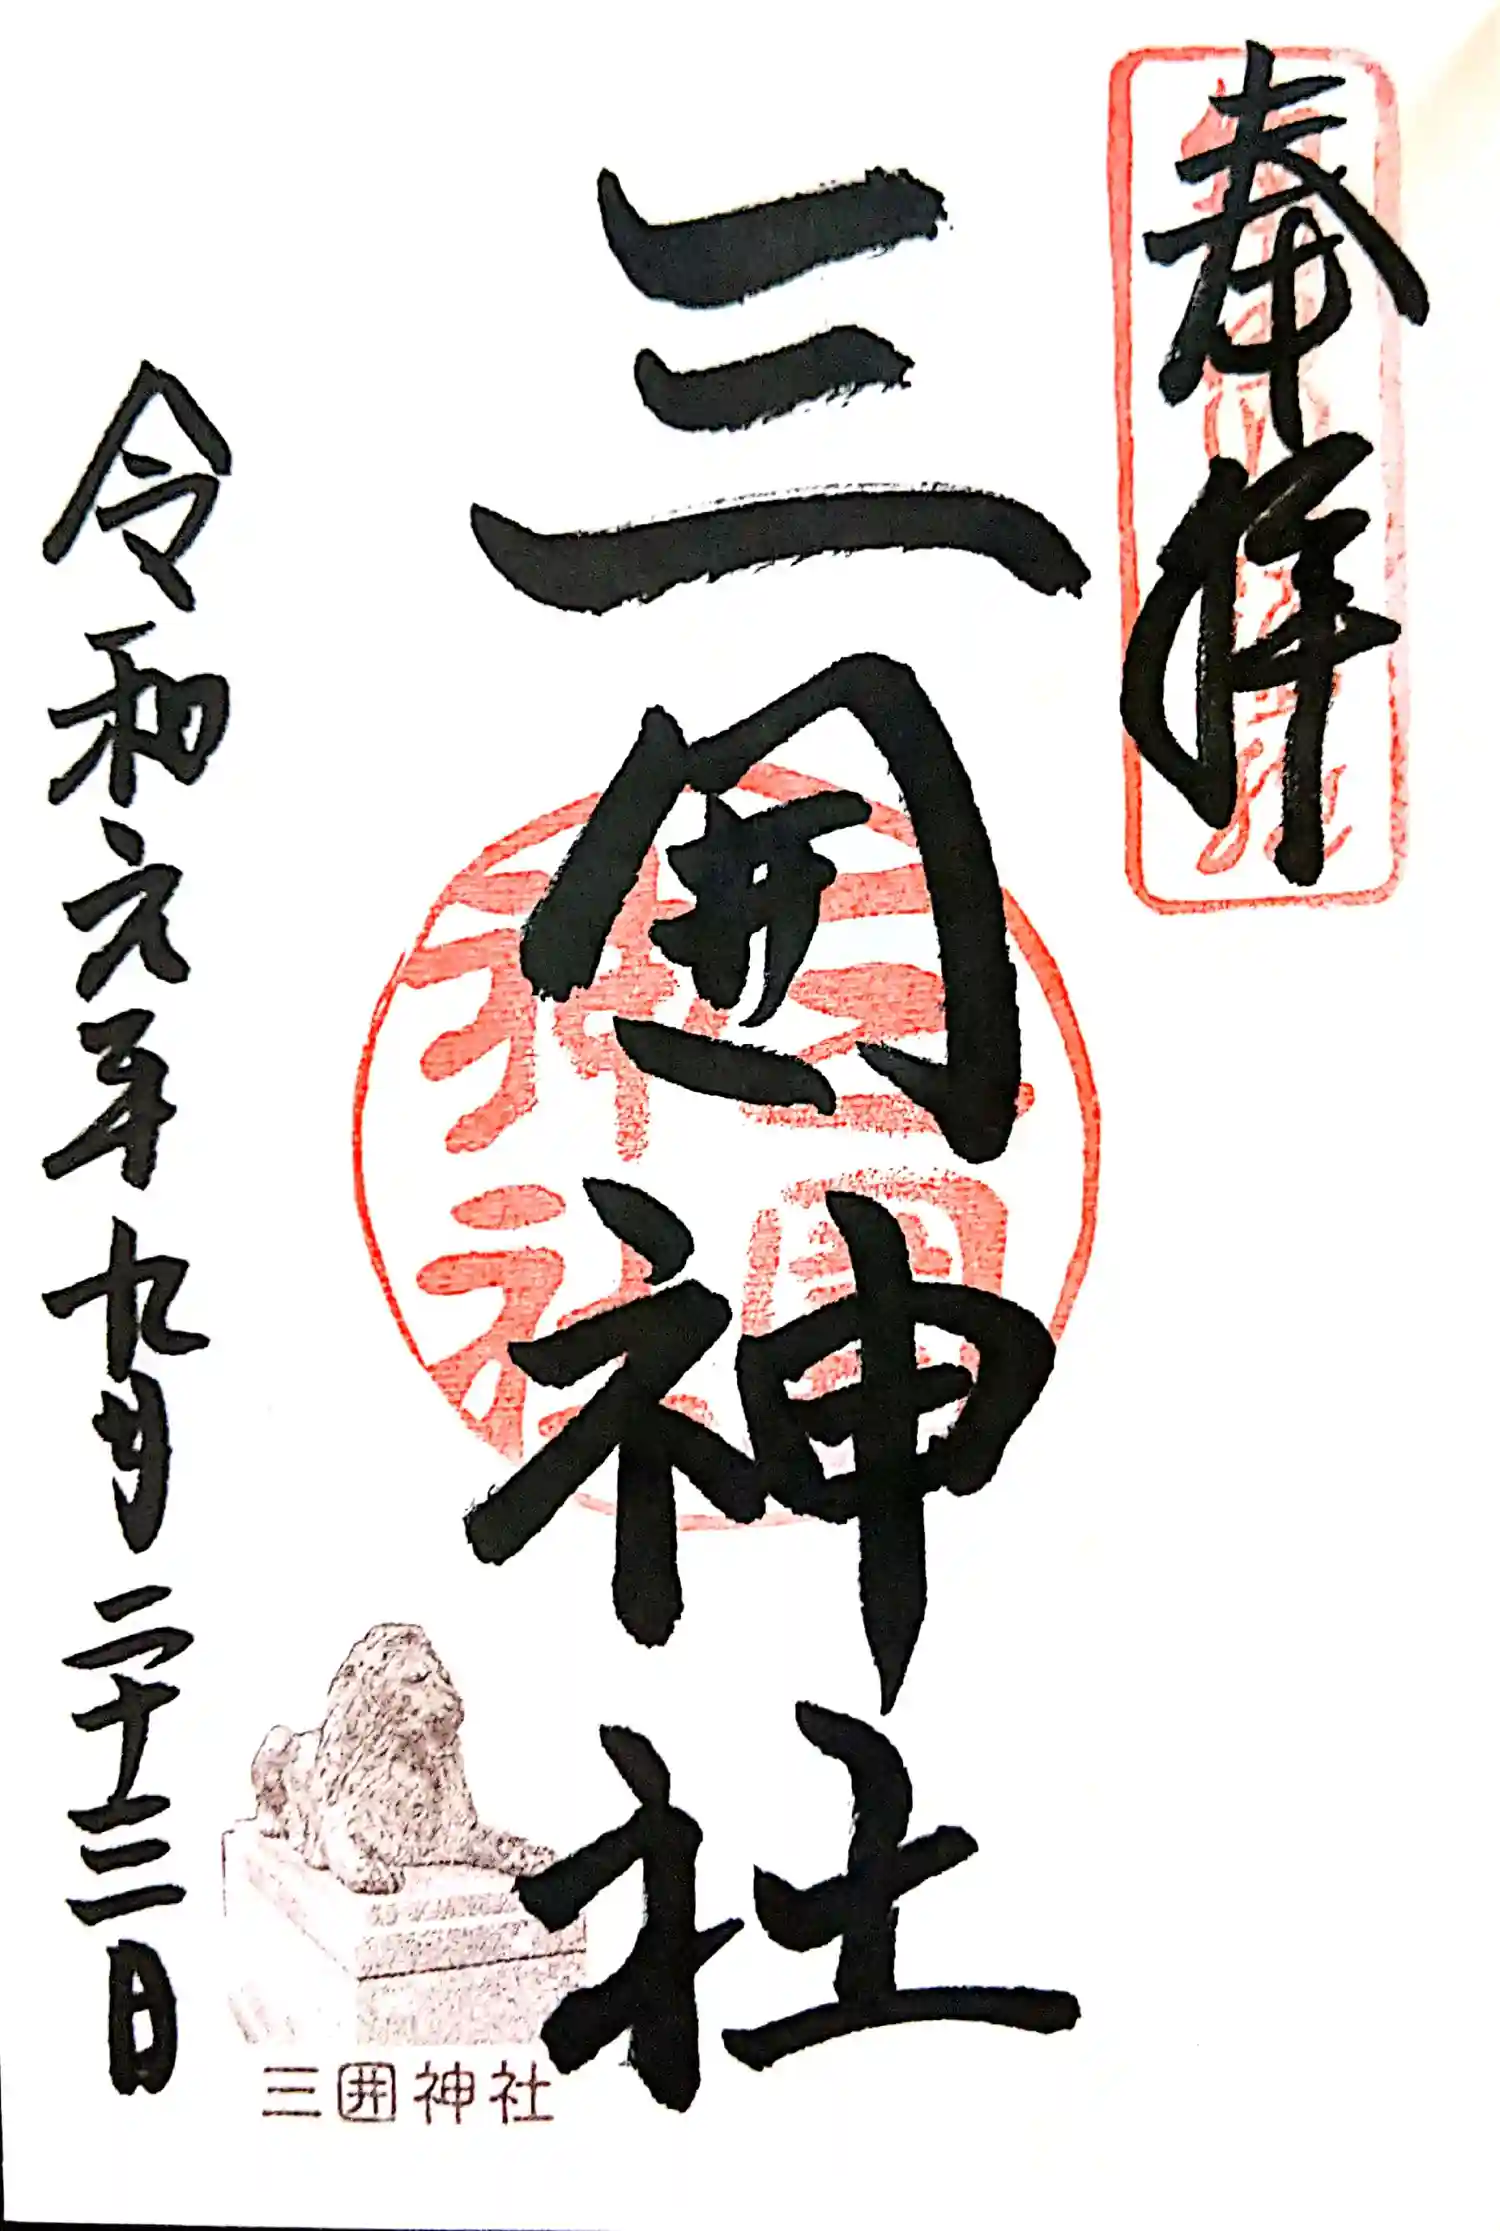 奉拝
三囲神社
令和元年九月二十三日
三囲神社
三囲神社